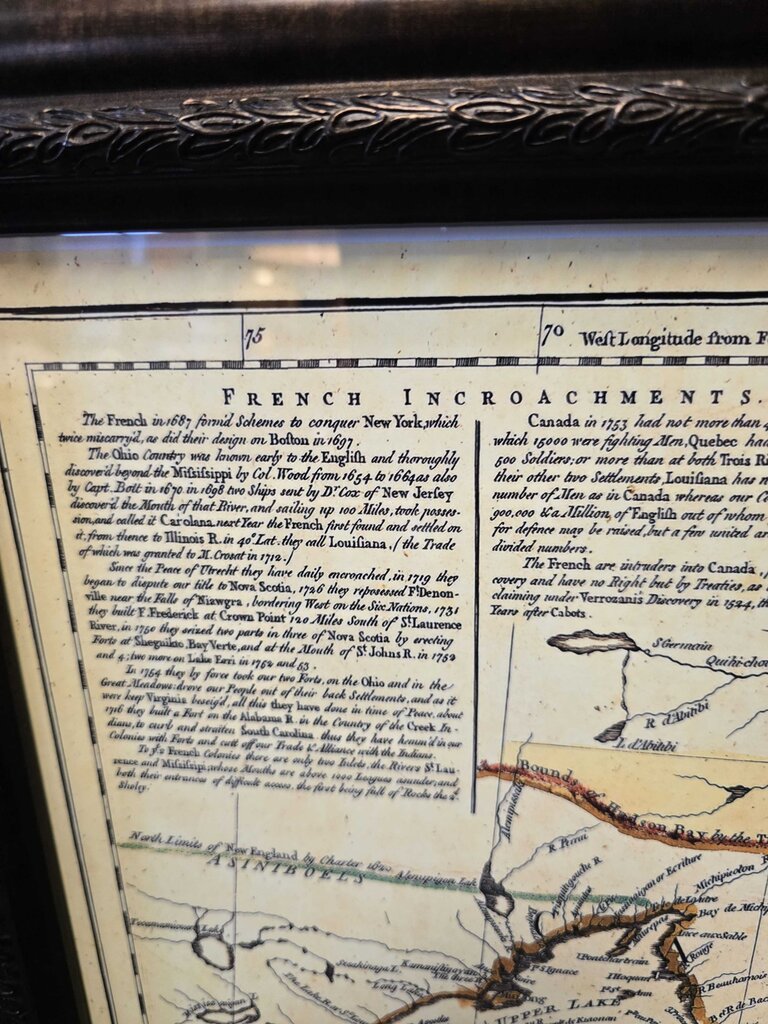 75
70
West Longitude from F
FRENCH INCROACHMENTS.
The French in 1687 form'd Schemes to conquer New York, which
twice miscarry'd, as did their design on Boston in 1697.
The Ohio Country was known early to the English and thoroughly
discover'd beyond the Mississippi by Col. Wood from 1654 to 1664 as also
by Capt. Bolt in 1670 in 1698 two Ships sent by Dr. Cox of New Jersey
discover'd the Mouth of that River, and sailing up 100 Miles, took posses-
sion, and called it Carolana, next Year the French first found and settled on
it, from thence to Illinois R. in 40° Lat. they call Louisiana, (the Trade
of which was granted to M. Crosat in 1712.)
Since the Peace of Utrecht they have daily encroached, in 1719 they
began to dispute our title to Nova Scotia, 1726 they reposessed Ft. Denon-
ville near the Falls of Niawgra, bordering West on the Six Nations, 1731
they built F. Frederick at Crown Point 120 Miles South of St. Laurence
River, in 1750 they seized two parts in three of Nova Scotia by erecting
Forts at Shegnikto, Bay Verte, and at the Mouth of St. Johns R. in 1752
and 4; two more on Lake Erri in 1752 and 53.
In 1754 they by force took our two Forts, on the Ohio and in the
Great Meadows: drove our People out of their back Settlements, and as it
were keep Virginia beseig'd, all this they have done in time of Peace, about
1716 they built a Fort on the Alabama R. in the Country of the Creek In-
dians, to curb and straiten South Carolina thus they have humm'd in our
Colonies with Forts and cutt off our Trade & Alliance with the Indians.
To ye French Colonies there are only two Inlets, the Rivers St. Lau-
rence and Missisipi, whose Mouths are above 1000 Leagues asunder; and
both their entrances of difficult access, the first being full of Rocks the 2d.
Sholey.
Canada in 1753 had not more than 4
which 15000 were fighting Men, Quebec had
500 Soldiers; or more than at both Trois Ri
their other two Settlements, Louisiana has n
number of Men as in Canada whereas our Co
900,000 & a Million, of English out of whom
for defence may be raised, but a few united ar
divided numbers.
The French are intruders into Canada,
covery and have no Right but by Treaties, as
claiming under Verrozanis Discovery in 1524, th
Years after Cabots.
S Germain
Quihi-chou
R d'Abitibi
L d'Abitibi
Bounds of Hudson Bay by the T
North Limits of New England by Charter 1620
Alemipigon Lak
ASINIBOELS
R. Perra
Michipicoton
Bay de Mich
Ance aux Sable
Maurepas
I Pontchartrain
P. S Ignace
R Beauharnois
B et R de Bac
Long Lake
UPPER LAKE